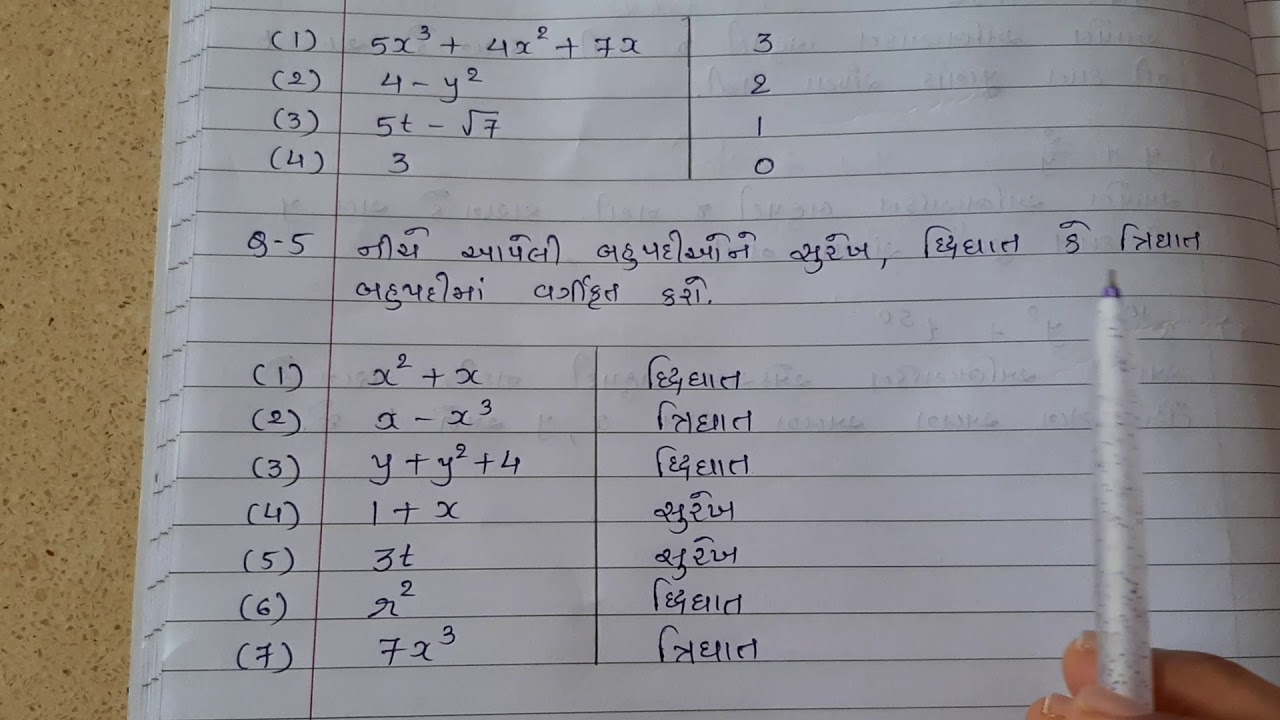 (1) 5x³ + 4x² + 7x 3
(2) 4 - y² 2
(3) 5t - √7 1
(4) 3 0
Q-5 નીચે આપેલી બહુપદીઓને સુરેખ, દ્વિઘાત કે ત્રિઘાત
બહુપદીમાં વર્ગીકૃત કરો.
(1) x² + x દ્વિઘાત
(2) x - x³ ત્રિઘાત
(3) y + y² + 4 દ્વિઘાત
(4) 1 + x સુરેખ
(5) 3t સુરેખ
(6) r² દ્વિઘાત
(7) 7x³ ત્રિઘાત